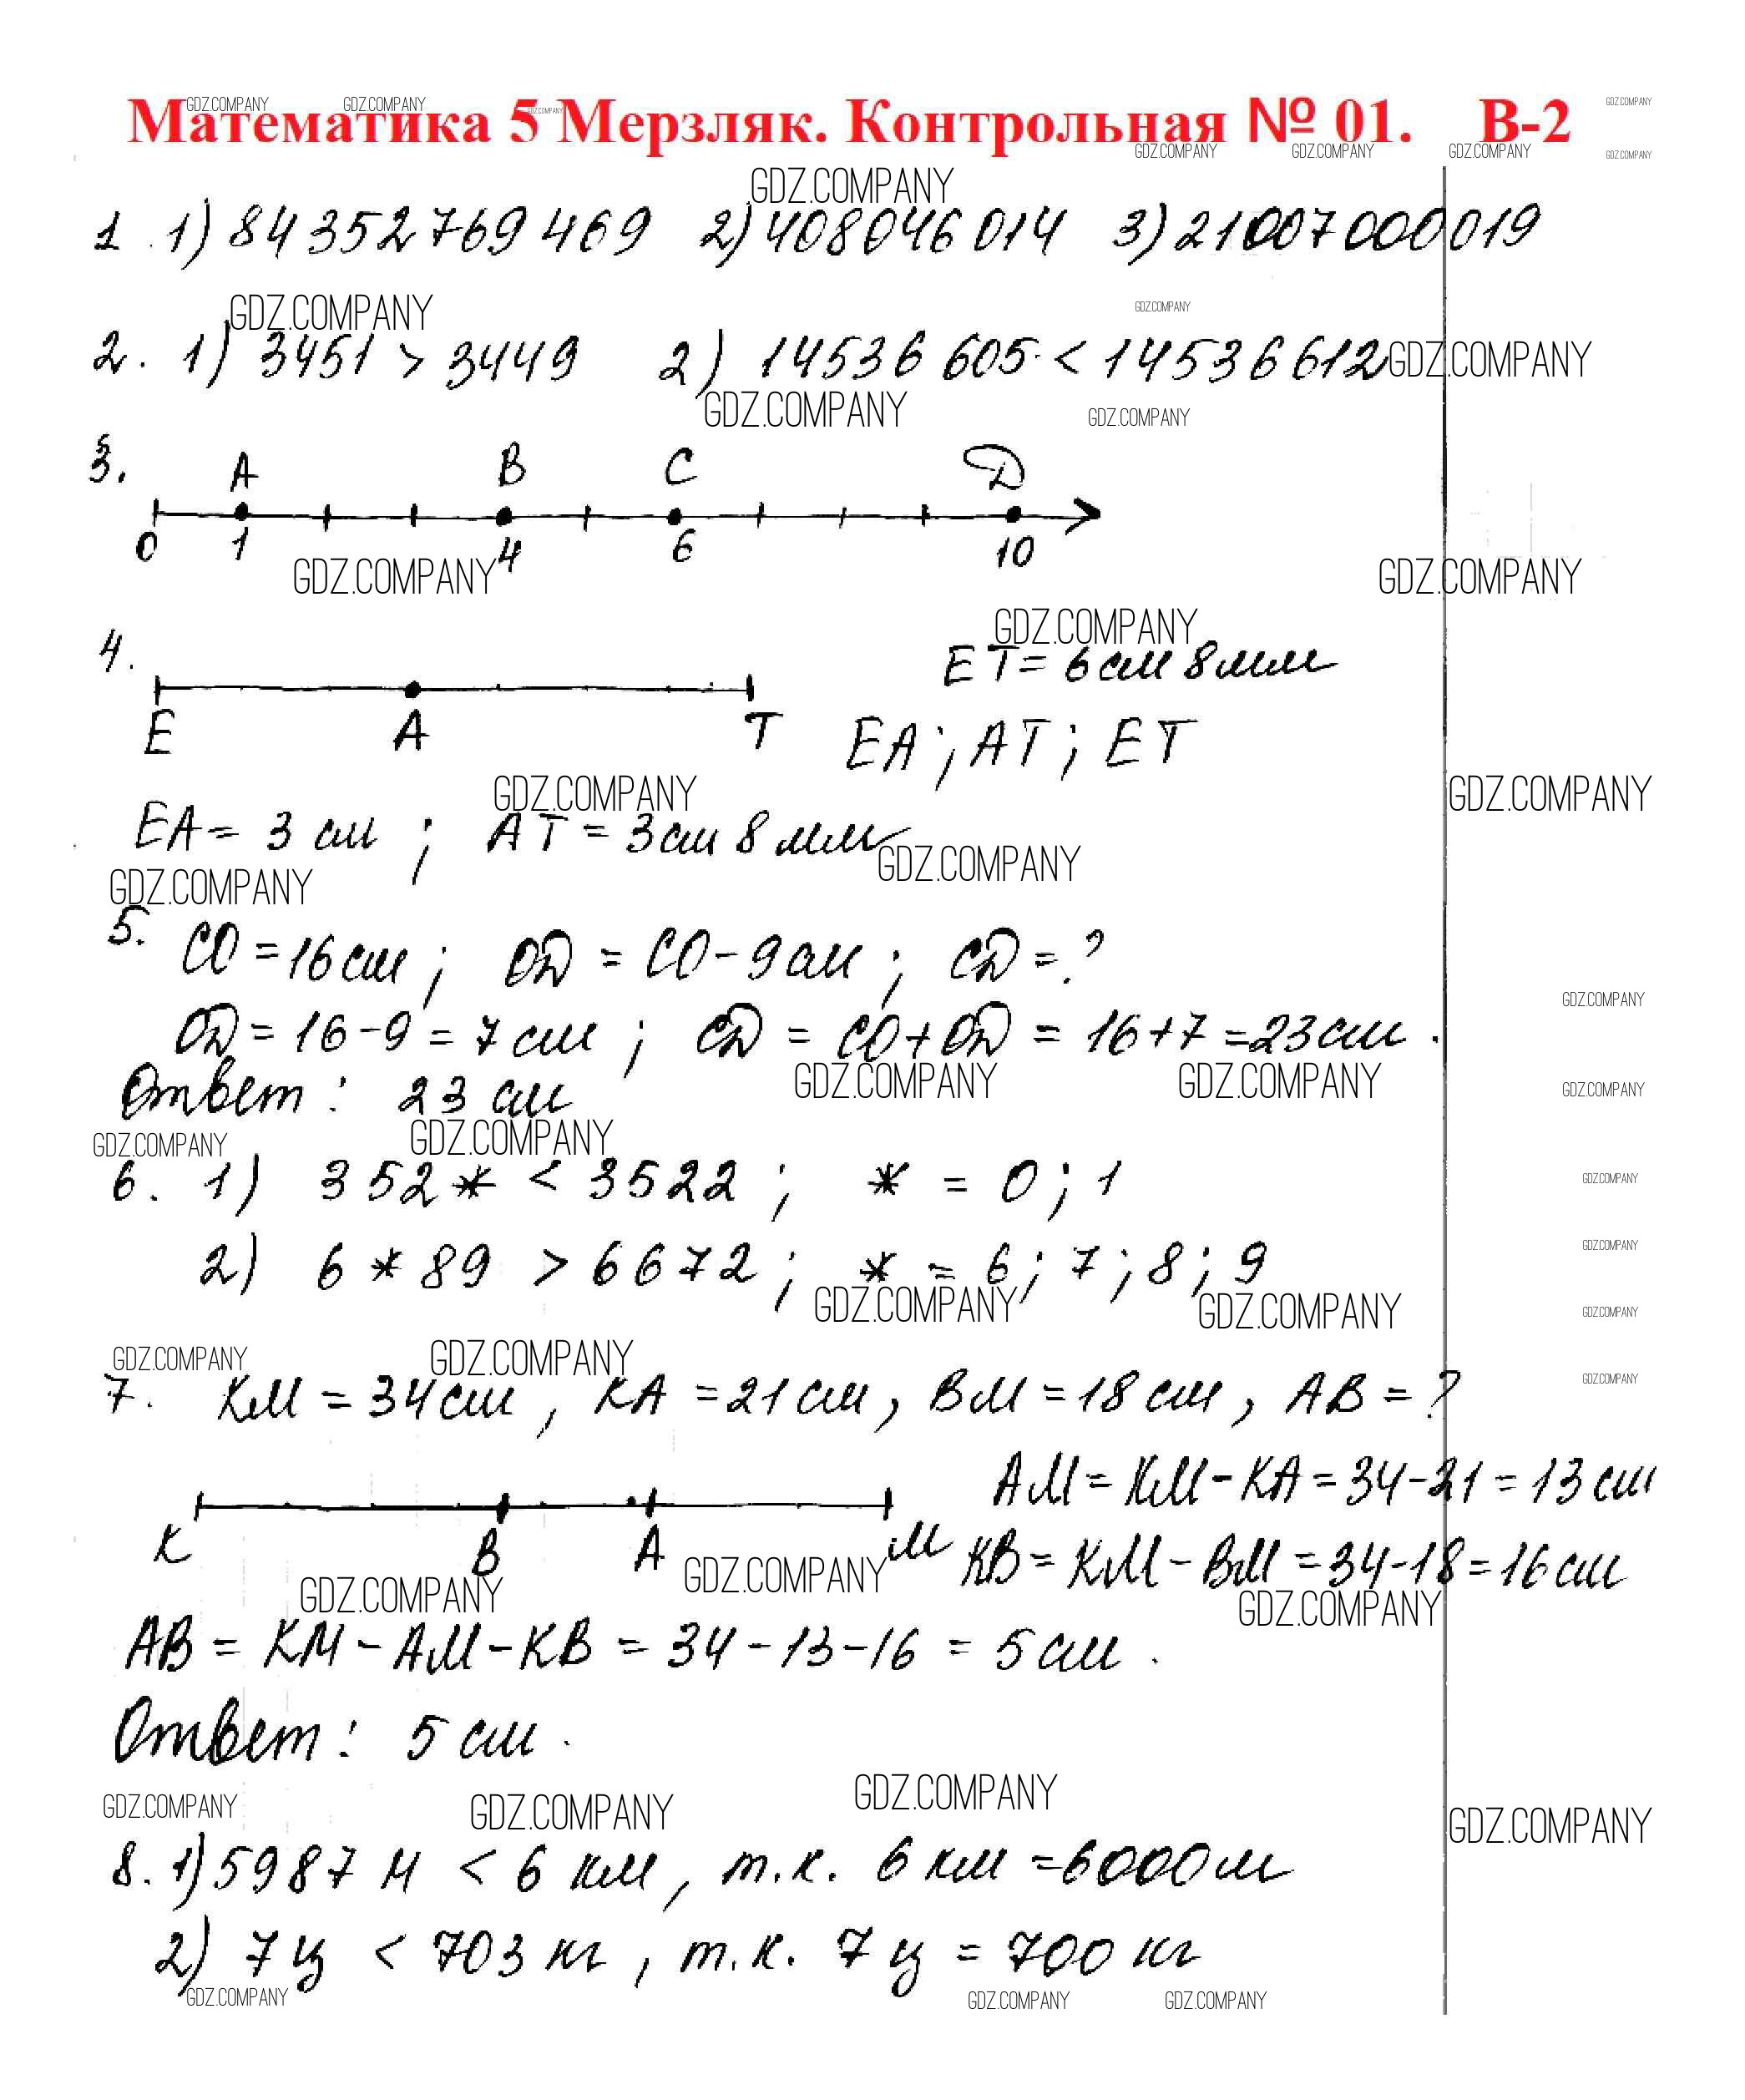 Математика 5 Мерзляк. Контрольная № 01. В-2
1. 1) 84352769469 2) 408046014 3) 21007000019
2. 1) 3451 > 3449 2) 14536605 < 14536612
3.
A B C D
0 1 4 6 10
4.
ET = 6 см 8 мм
E A T
EA ; AT ; ET
EA = 3 см ; AT = 3 см 8 мм
5. CO = 16 см ; OD = CO - 9 см ; CD = ?
OD = 16 - 9 = 7 см ; CD = CO + OD = 16 + 7 = 23 см.
Ответ: 23 см
6. 1) 352* < 3522 ; * = 0 ; 1
2) 6*89 > 6672 ; * = 6 ; 7 ; 8 ; 9
7. KM = 34 см , KA = 21 см , BM = 18 см , AB = ?
AM = KM - KA = 34 - 21 = 13 см
K B A M
KB = KM - BM = 34 - 18 = 16 см
AB = KM - AM - KB = 34 - 13 - 16 = 5 см .
Ответ: 5 см .
8. 1) 5987 м < 6 км , т.к. 6 км = 6000 м
2) 7 ц < 703 кг , т.к. 7 ц = 700 кг
GDZ.COMPANY